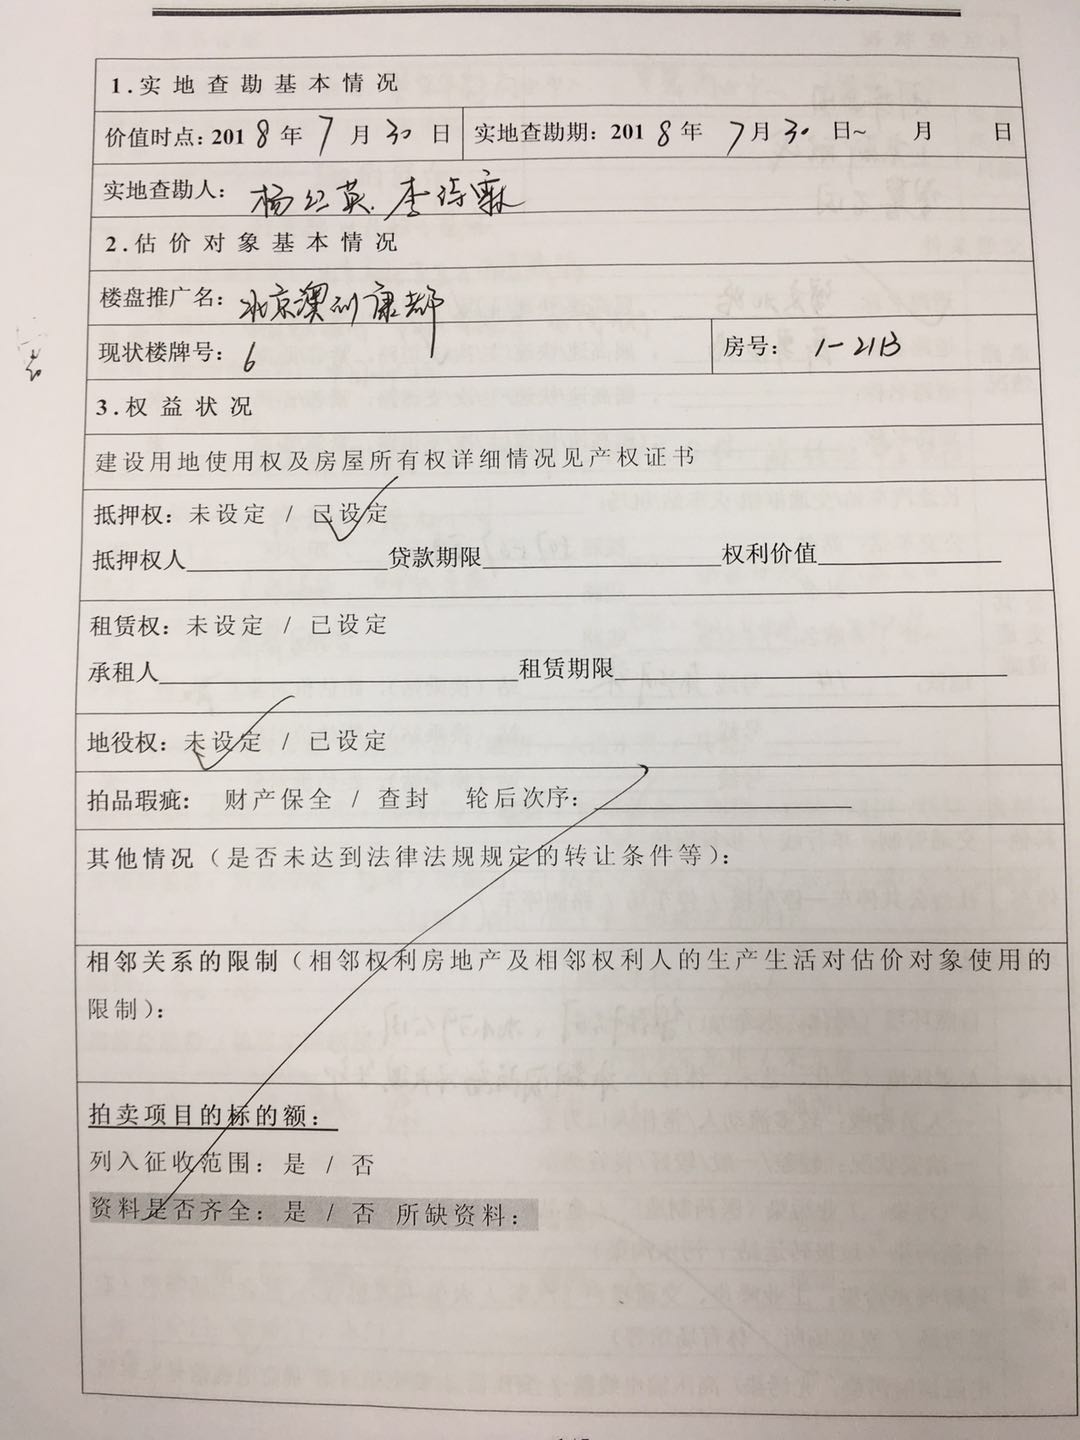 1.实地查勘基本情况
价值时点: 2018年7月30日 实地查勘期: 2018年7月30日~ 月 日
实地查勘人: 杨红英.李诗霖
2.估价对象基本情况
楼盘推广名: 北京澳洲康都
现状楼牌号: 6 房号: 1-21B
3.权益状况
建设用地使用权及房屋所有权详细情况见产权证书
抵押权: 未设定 / 已设定
抵押权人____________贷款期限____________权利价值____________
租赁权: 未设定 / 已设定
承租人____________租赁期限____________
地役权: 未设定 / 已设定
拍品瑕疵: 财产保全 / 查封 轮后次序:____________
其他情况（是否未达到法律法规规定的转让条件等）:
相邻关系的限制（相邻权利房地产及相邻权利人的生产生活对估价对象使用的
限制）:
拍卖项目的标的额:
列入征收范围: 是 / 否
资料是否齐全: 是 / 否 所缺资料: